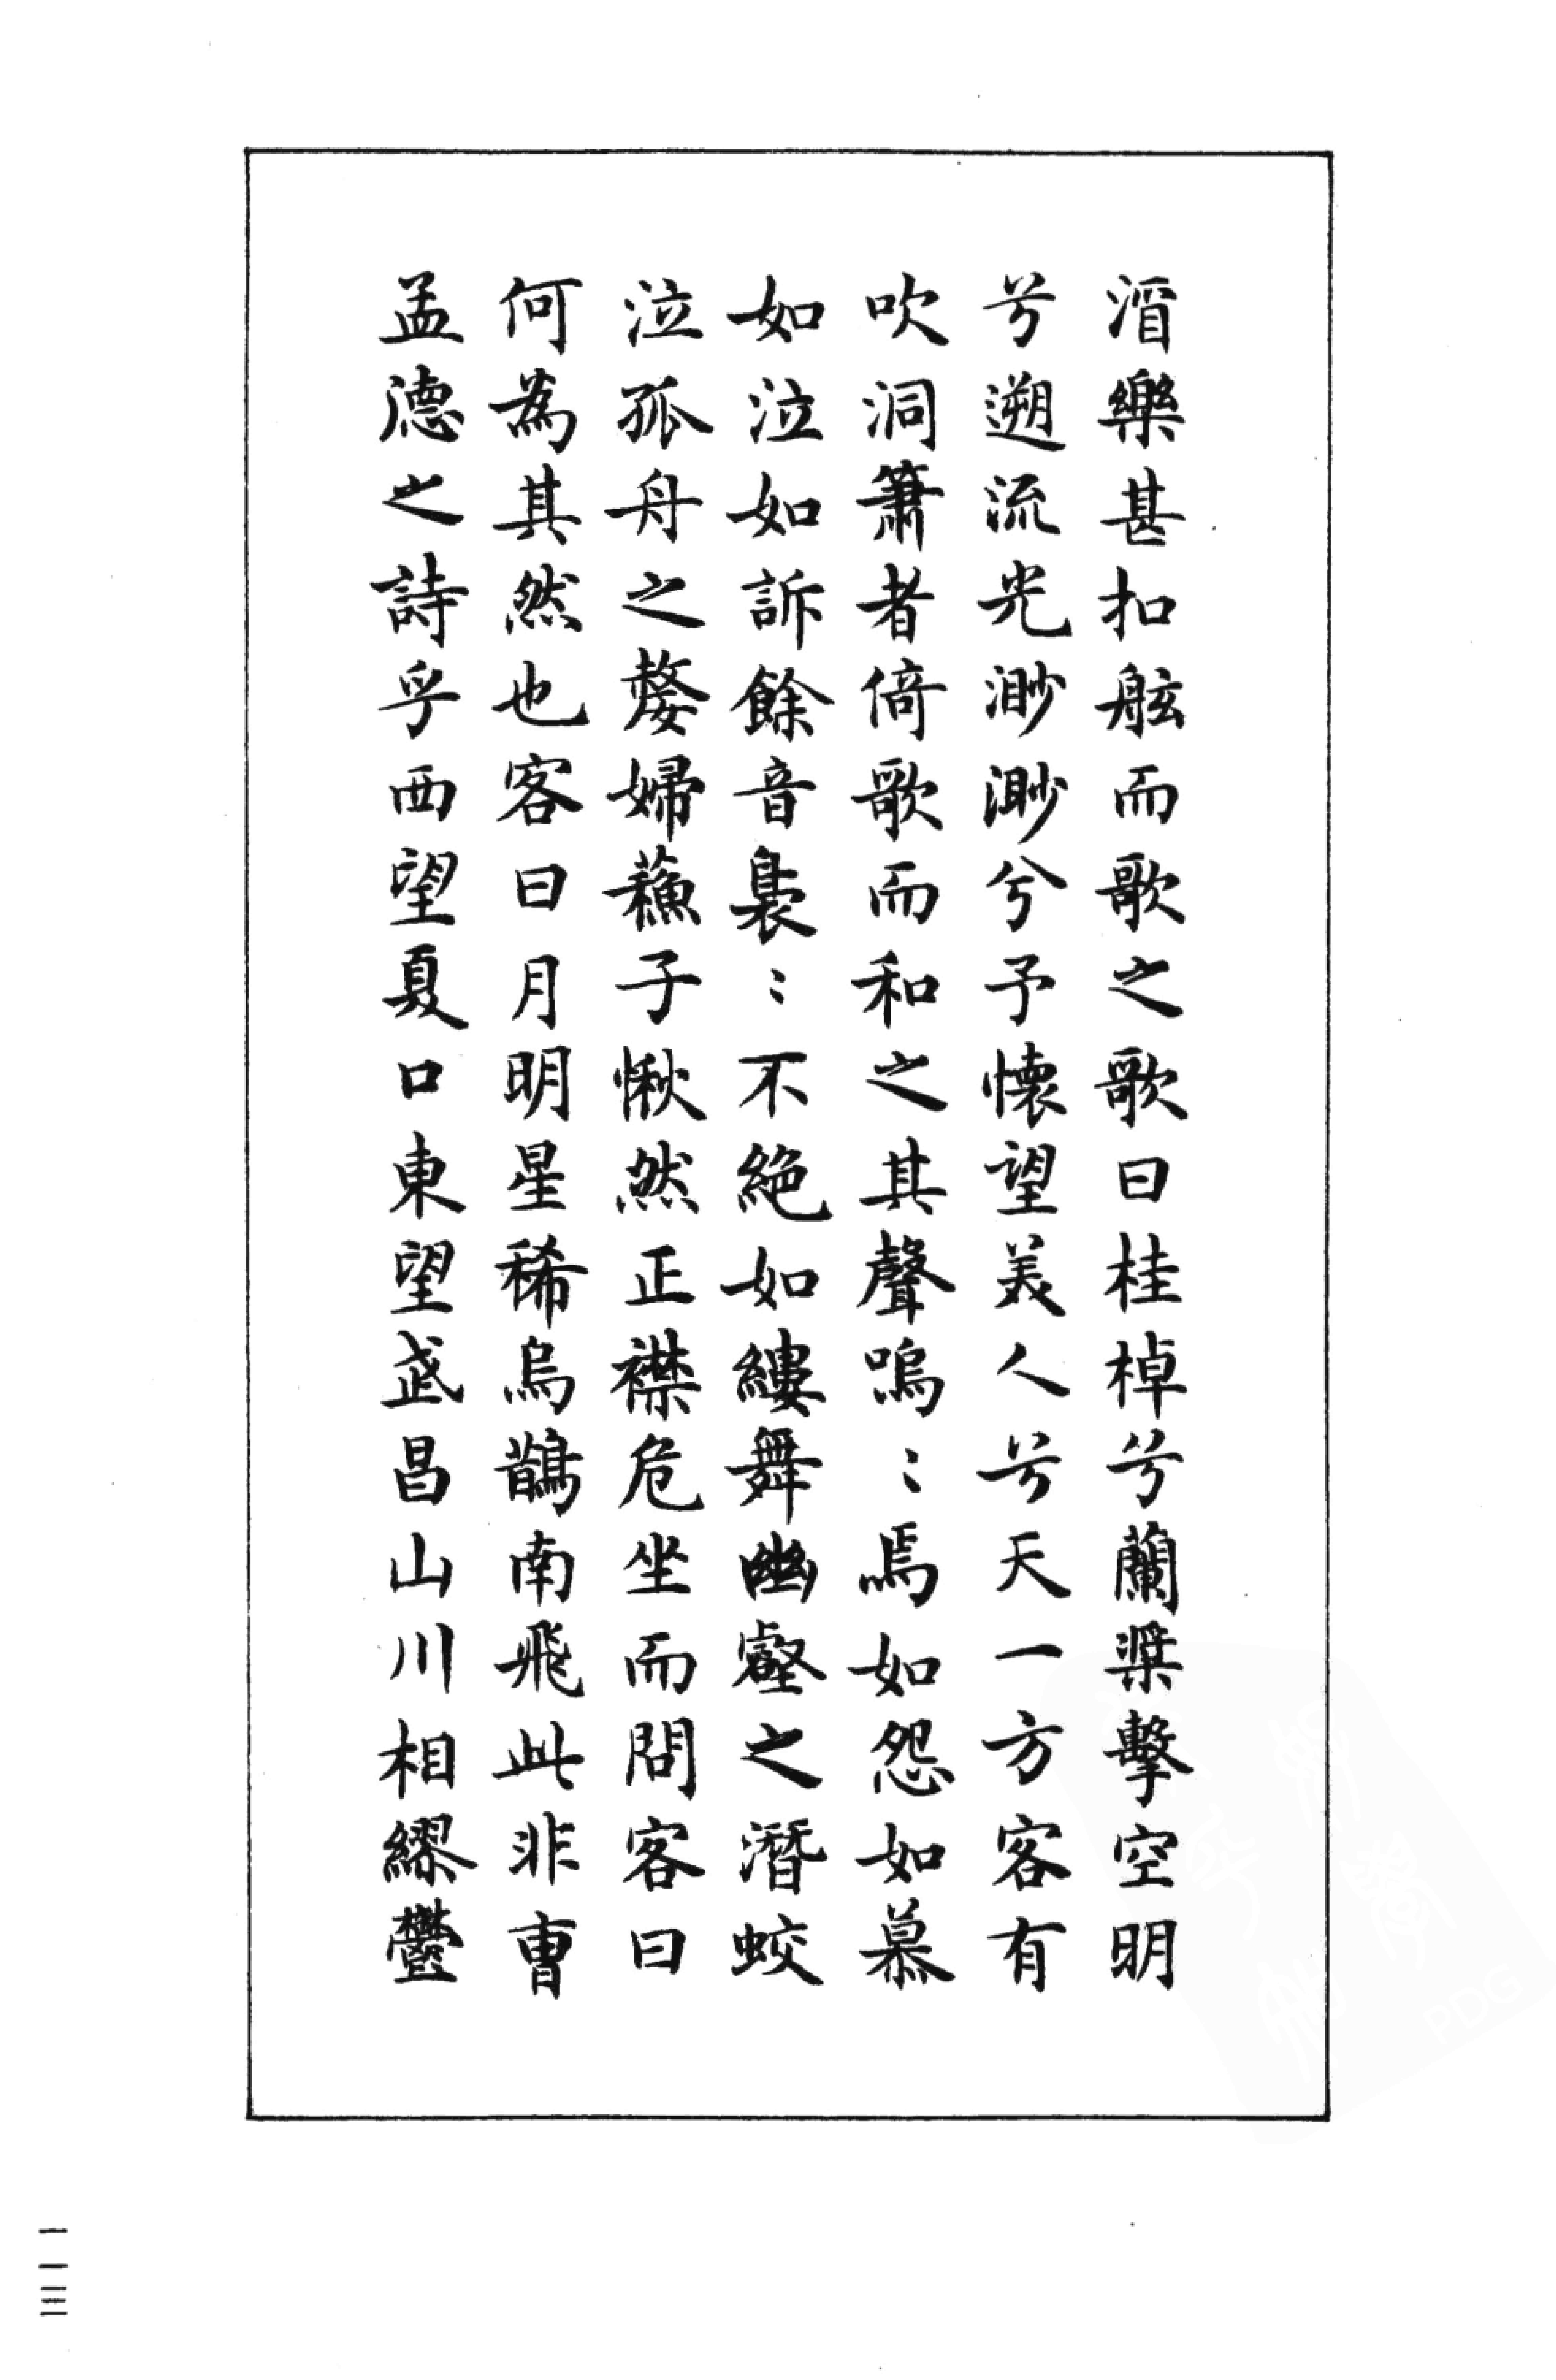 酒樂甚扣舷而歌之歌曰桂棹兮蘭槳擊空明
兮遡流光渺渺兮予懷望美人兮天一方客有
吹洞簫者倚歌而和之其聲嗚〻焉如怨如慕
如泣如訴餘音裊〻不絕如縷舞幽壑之潛蛟
泣孤舟之嫠婦蘇子愀然正襟危坐而問客曰
何為其然也客曰月明星稀烏鵲南飛此非曹
孟德之詩乎西望夏口東望武昌山川相繆鬱
一一三